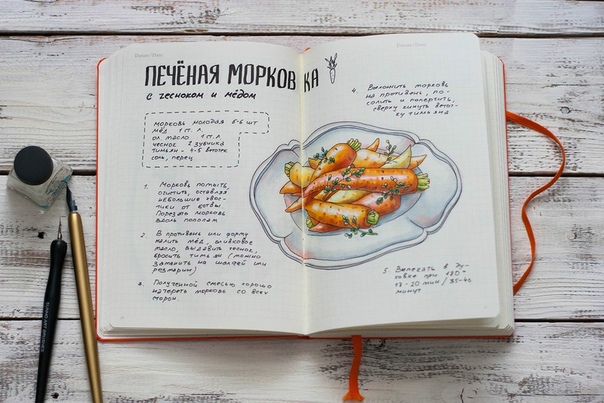 ПЕЧЁНАЯ МОРКОВКА
с чесноком и мёдом
морковь молодая 5-6 шт
мёд 1 ст. л
ол. масло 1 ст. л
чеснок 2 зубчика
тимьян - 4-5 веточек
соль, перец
1. Морковь помыть,
очистить, оставляя
небольшие хвос-
тики от ботвы
Порезать морковь
вдоль пополам
2. В противень или форму
налить мёд, оливковое
масло, выдавить чеснок,
бросить тимьян (можно
заменить на шалфей или
розмарин)
3. Полученной смесью хорошо
натереть морковь со всех
сторон.
4. Выложить морковь
на противень, по-
солить и поперчить,
сверху кинуть веточ-
ку тимьяна
5. Запекать в ду-
ховке при 180°
минут